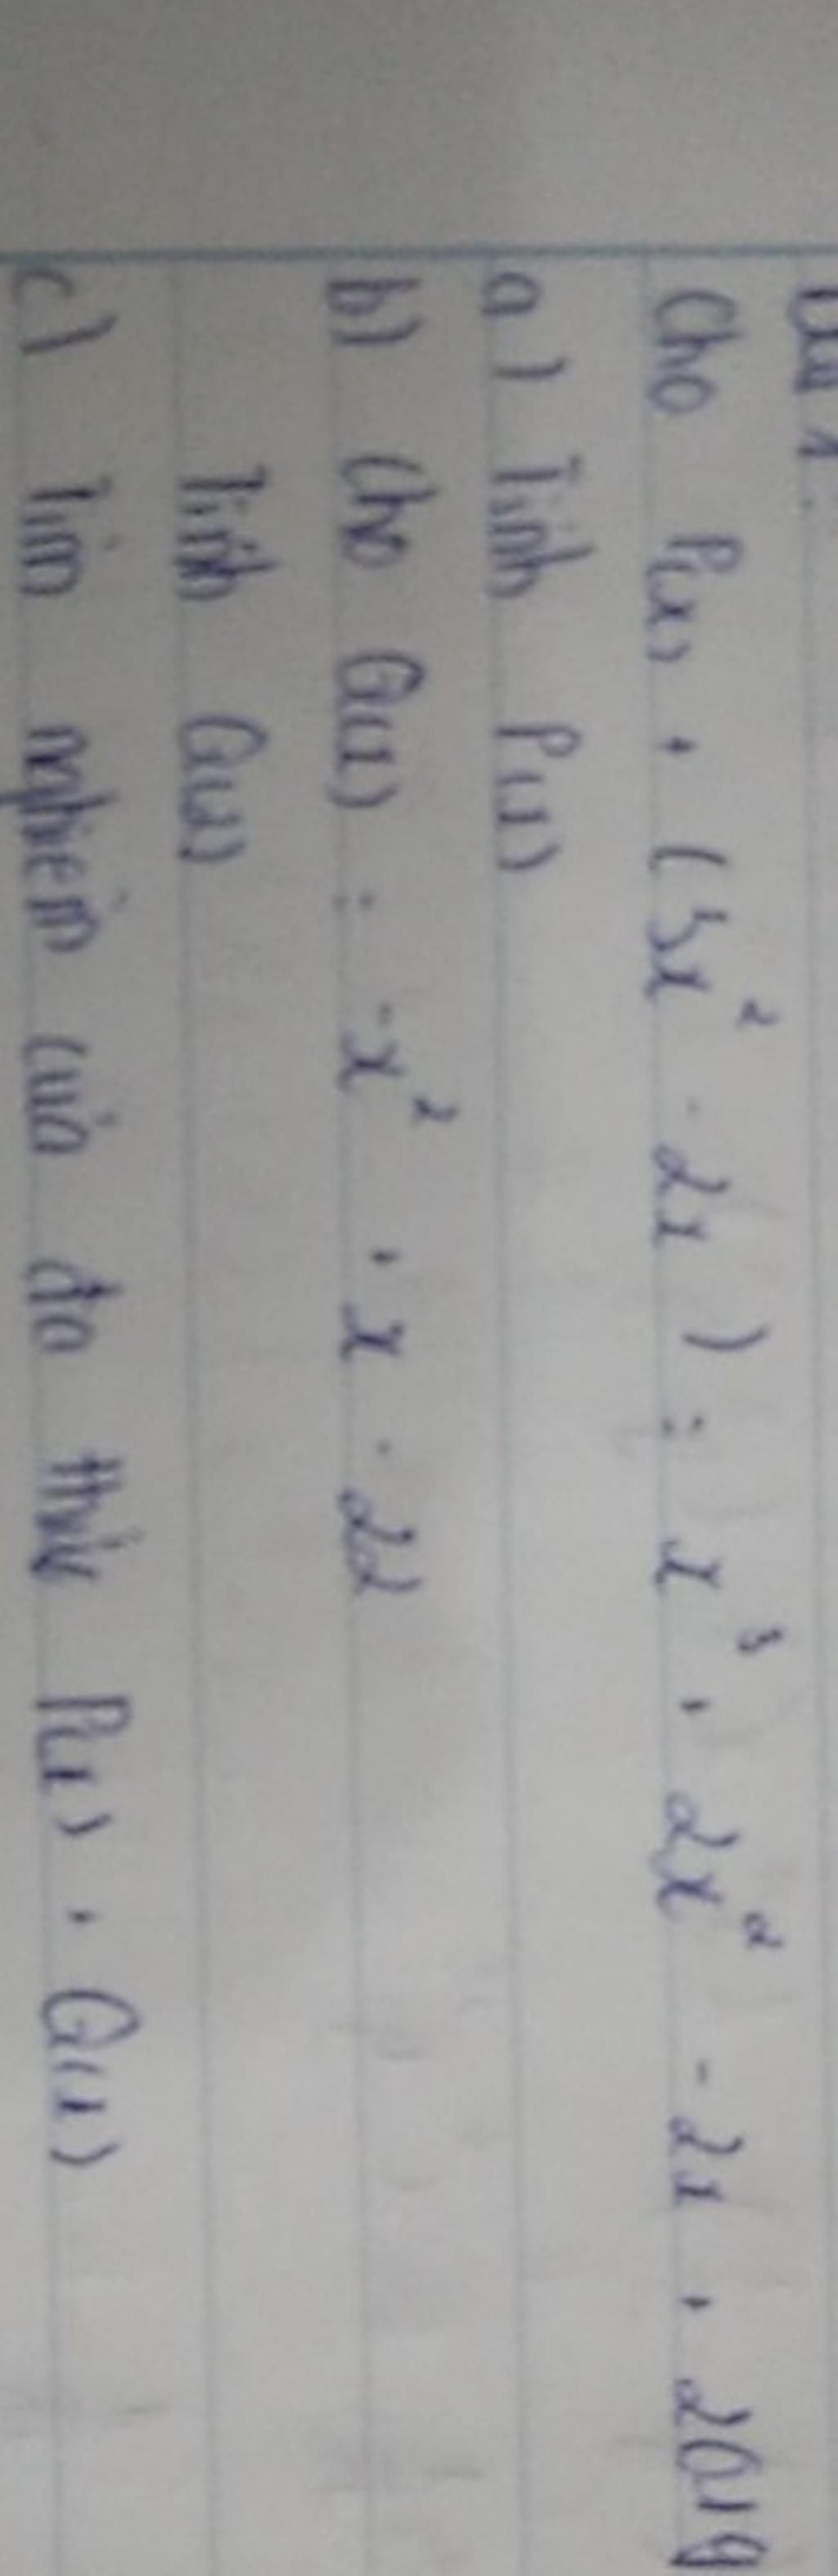 Bài 1.
Cho P(x) + (3x² - 2x) = x³ + 2x² - 2x + 2019
a) Tính P(x)
b) Cho Q(x) = -x² + x - 22
Tính Q(x)
c) Tìm nghiệm của đa thức P(x) + Q(x)